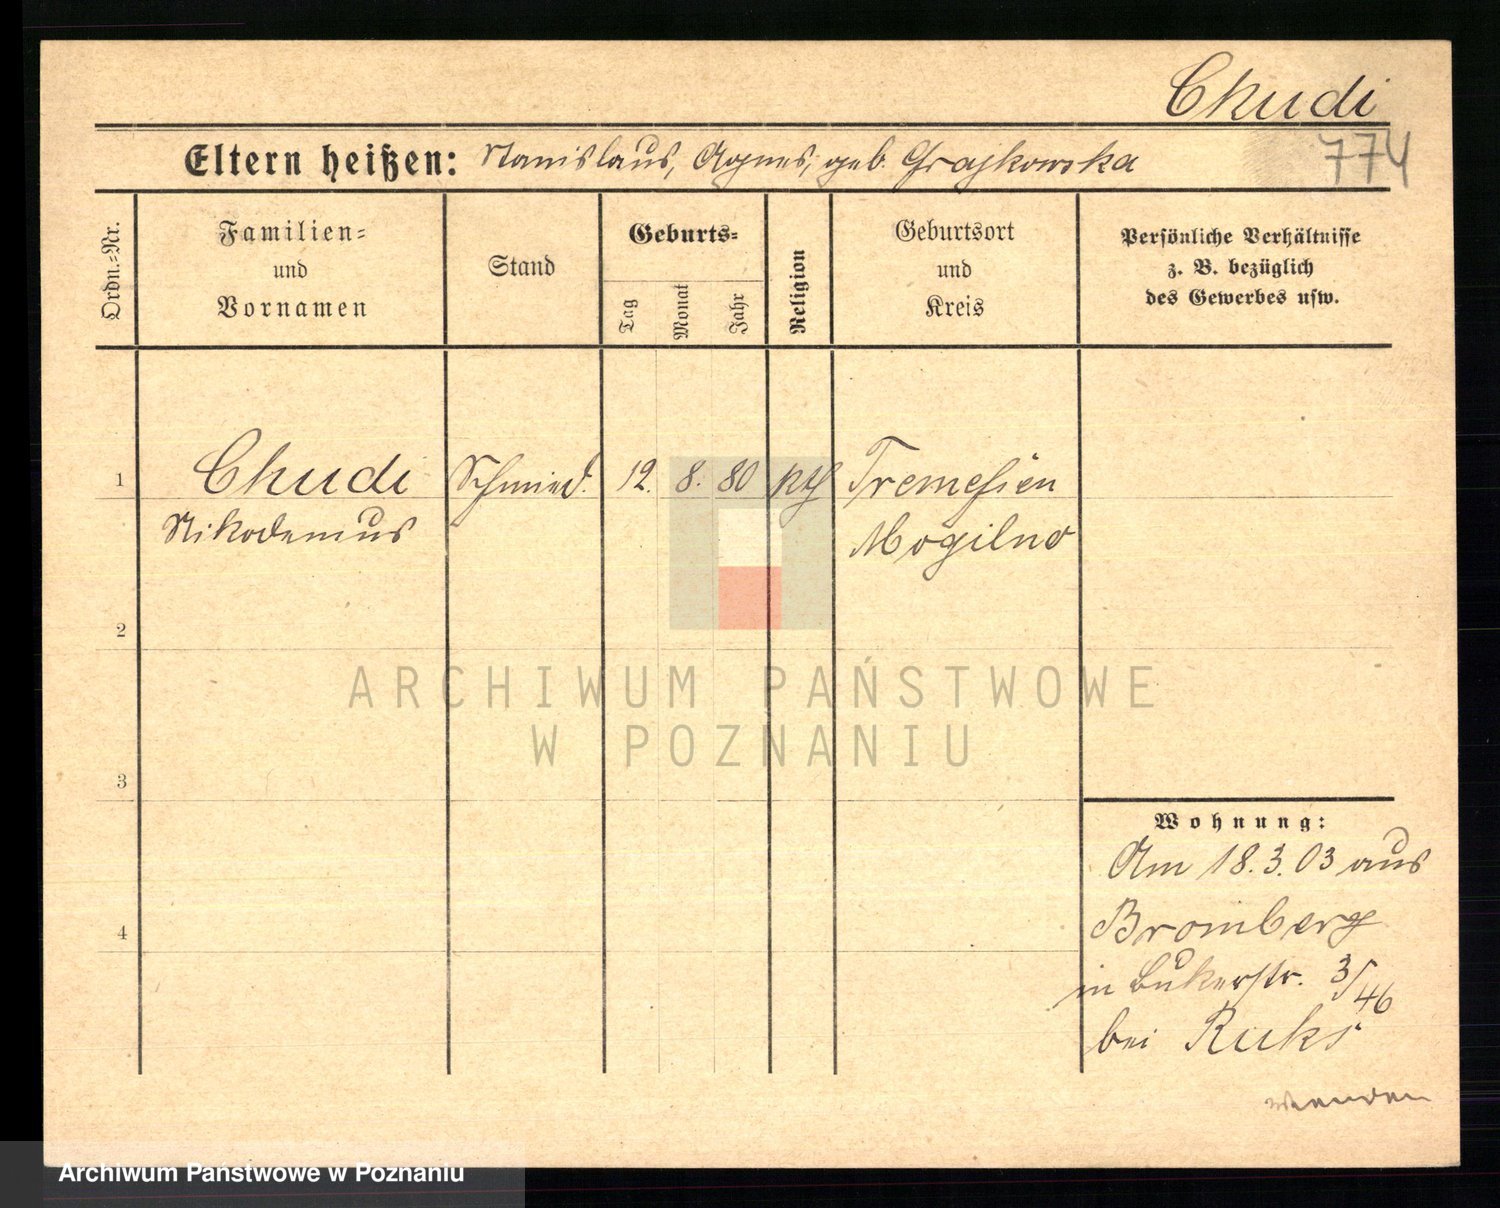 Chudi
774
Eltern heißen: Stanislaus, Agnes, geb. Grajkowska
Ordn.-Nr.
Familien-
und
Vornamen
Stand
Geburts-
Tag
Monat
Jahr
Religion
Geburtsort
und
Kreis
Persönliche Verhältnisse
z. B. bezüglich
des Gewerbes usw.
1 Chudi Schmied. 12. 8. 80 kth Tremessen
Nikodemus Mogilno
2
ARCHIWUM PAŃSTWOWE
W POZNANIU
3
Wohnung:
Am 18.3.03 aus
Bromberg
4
in Bukerstr. 3/46
bei Ruks
wenden
Archiwum Państwowe w Poznaniu